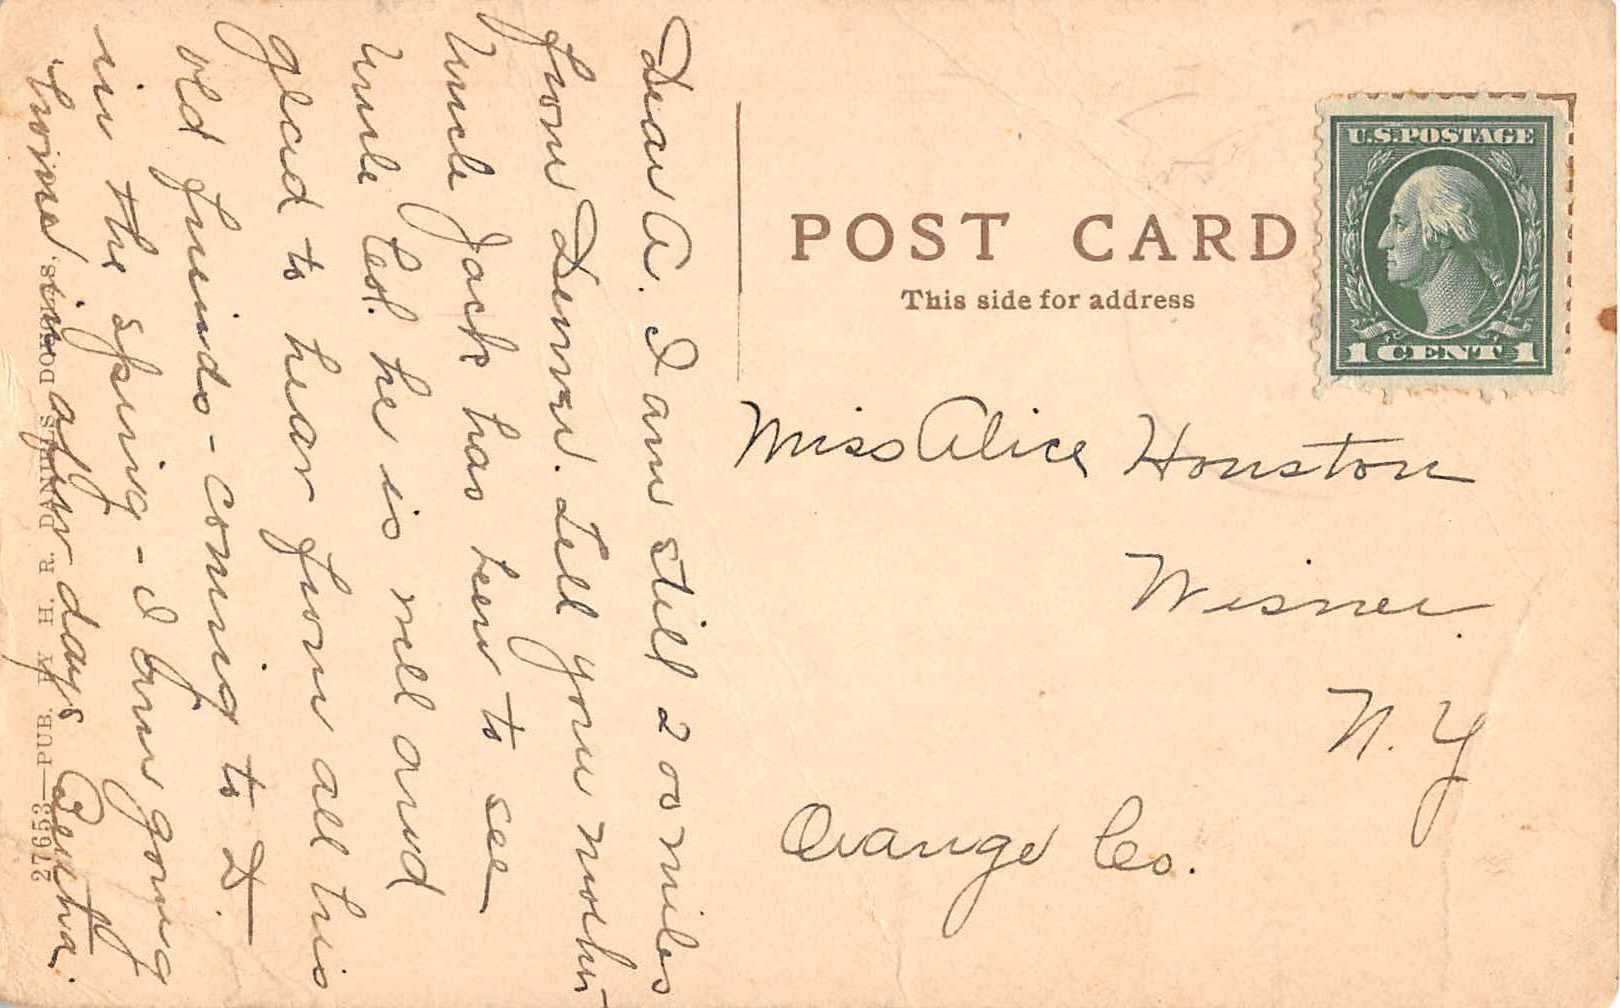 Dear A. I am still 200 miles
from Denver. Tell your mother
Uncle Jack has been to see
Uncle Col. he is well and
glad to hear from all his
old friends - coming to D.
in the spring - I am going
home in a few days Bertha.
27653—PUB. BY H. H. R. DANIELS DOR
POST CARD
This side for address
U.S. POSTAGE
1 CENT 1
Miss Alice Houston
Wisner.
N. Y
Orange Co.